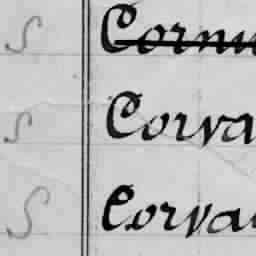 S Cornu
S Corva
S Corvai